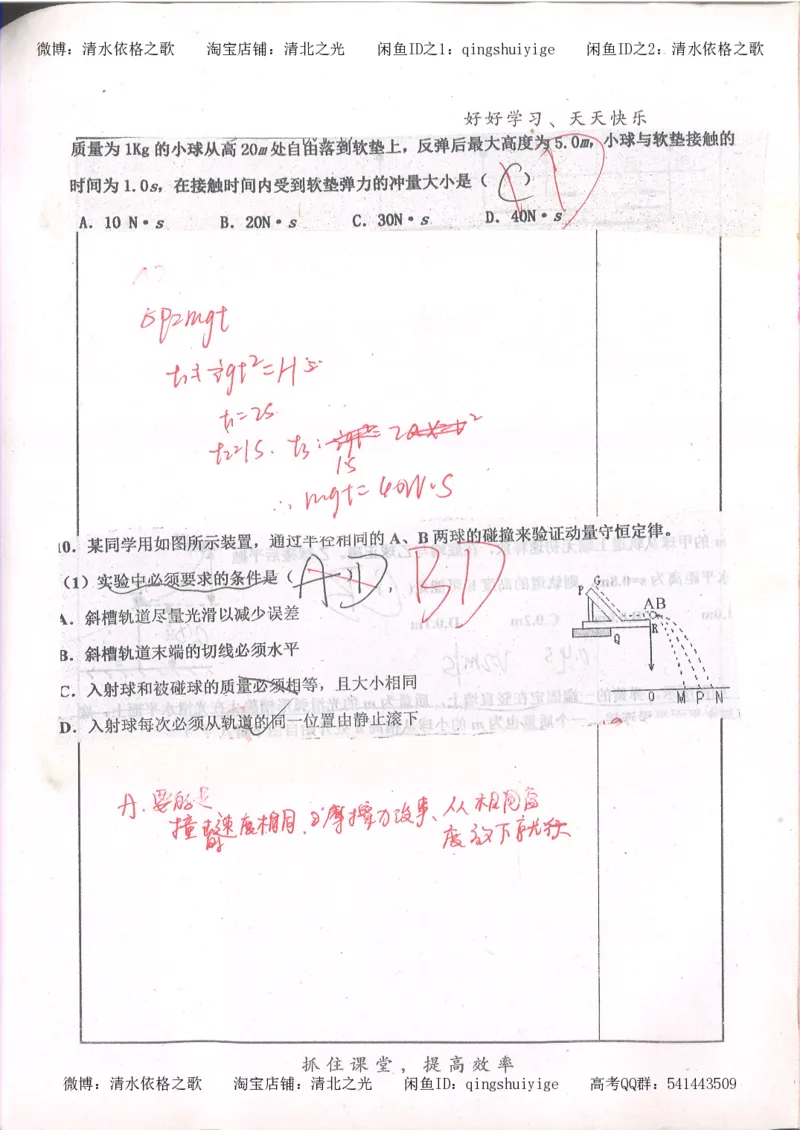 微博：清水依格之歌 淘宝店铺：清北之光 闲鱼ID之1：qingshuiyige 闲鱼ID之2：清水依格之歌
好好学习、天天快乐
质量为1Kg的小球从高20m处自由落到软垫上，反弹后最大高度为5.0m，小球与软垫接触的
时间为1.0s，在接触时间内受到软垫弹力的冲量大小是（ C ） D
A. 10 N·s B. 20N·s C. 30N·s D. 40N·s
δP=mgt
gt²=H
t₁=2S
t₂=1S. t₃:
1S
∴ mgt=40N·S
10. 某同学用如图所示装置，通过半径相同的A、B两球的碰撞来验证动量守恒定律。
（1）实验中必须要求的条件是（ AD ）， BD
A. 斜槽轨道尽量光滑以减少误差
B. 斜槽轨道末端的切线必须水平
C. 入射球和被碰球的质量必须相等，且大小相同
D. 入射球每次必须从轨道的同一位置由静止滚下
P G
AB
Q R
O M P N
A. 要的是
撞击速度相同, 摩擦力没事、从相同高
度放下就行
抓住课堂，提高效率
微博：清水依格之歌 淘宝店铺：清北之光 闲鱼ID：qingshuiyige 高考QQ群：541443509